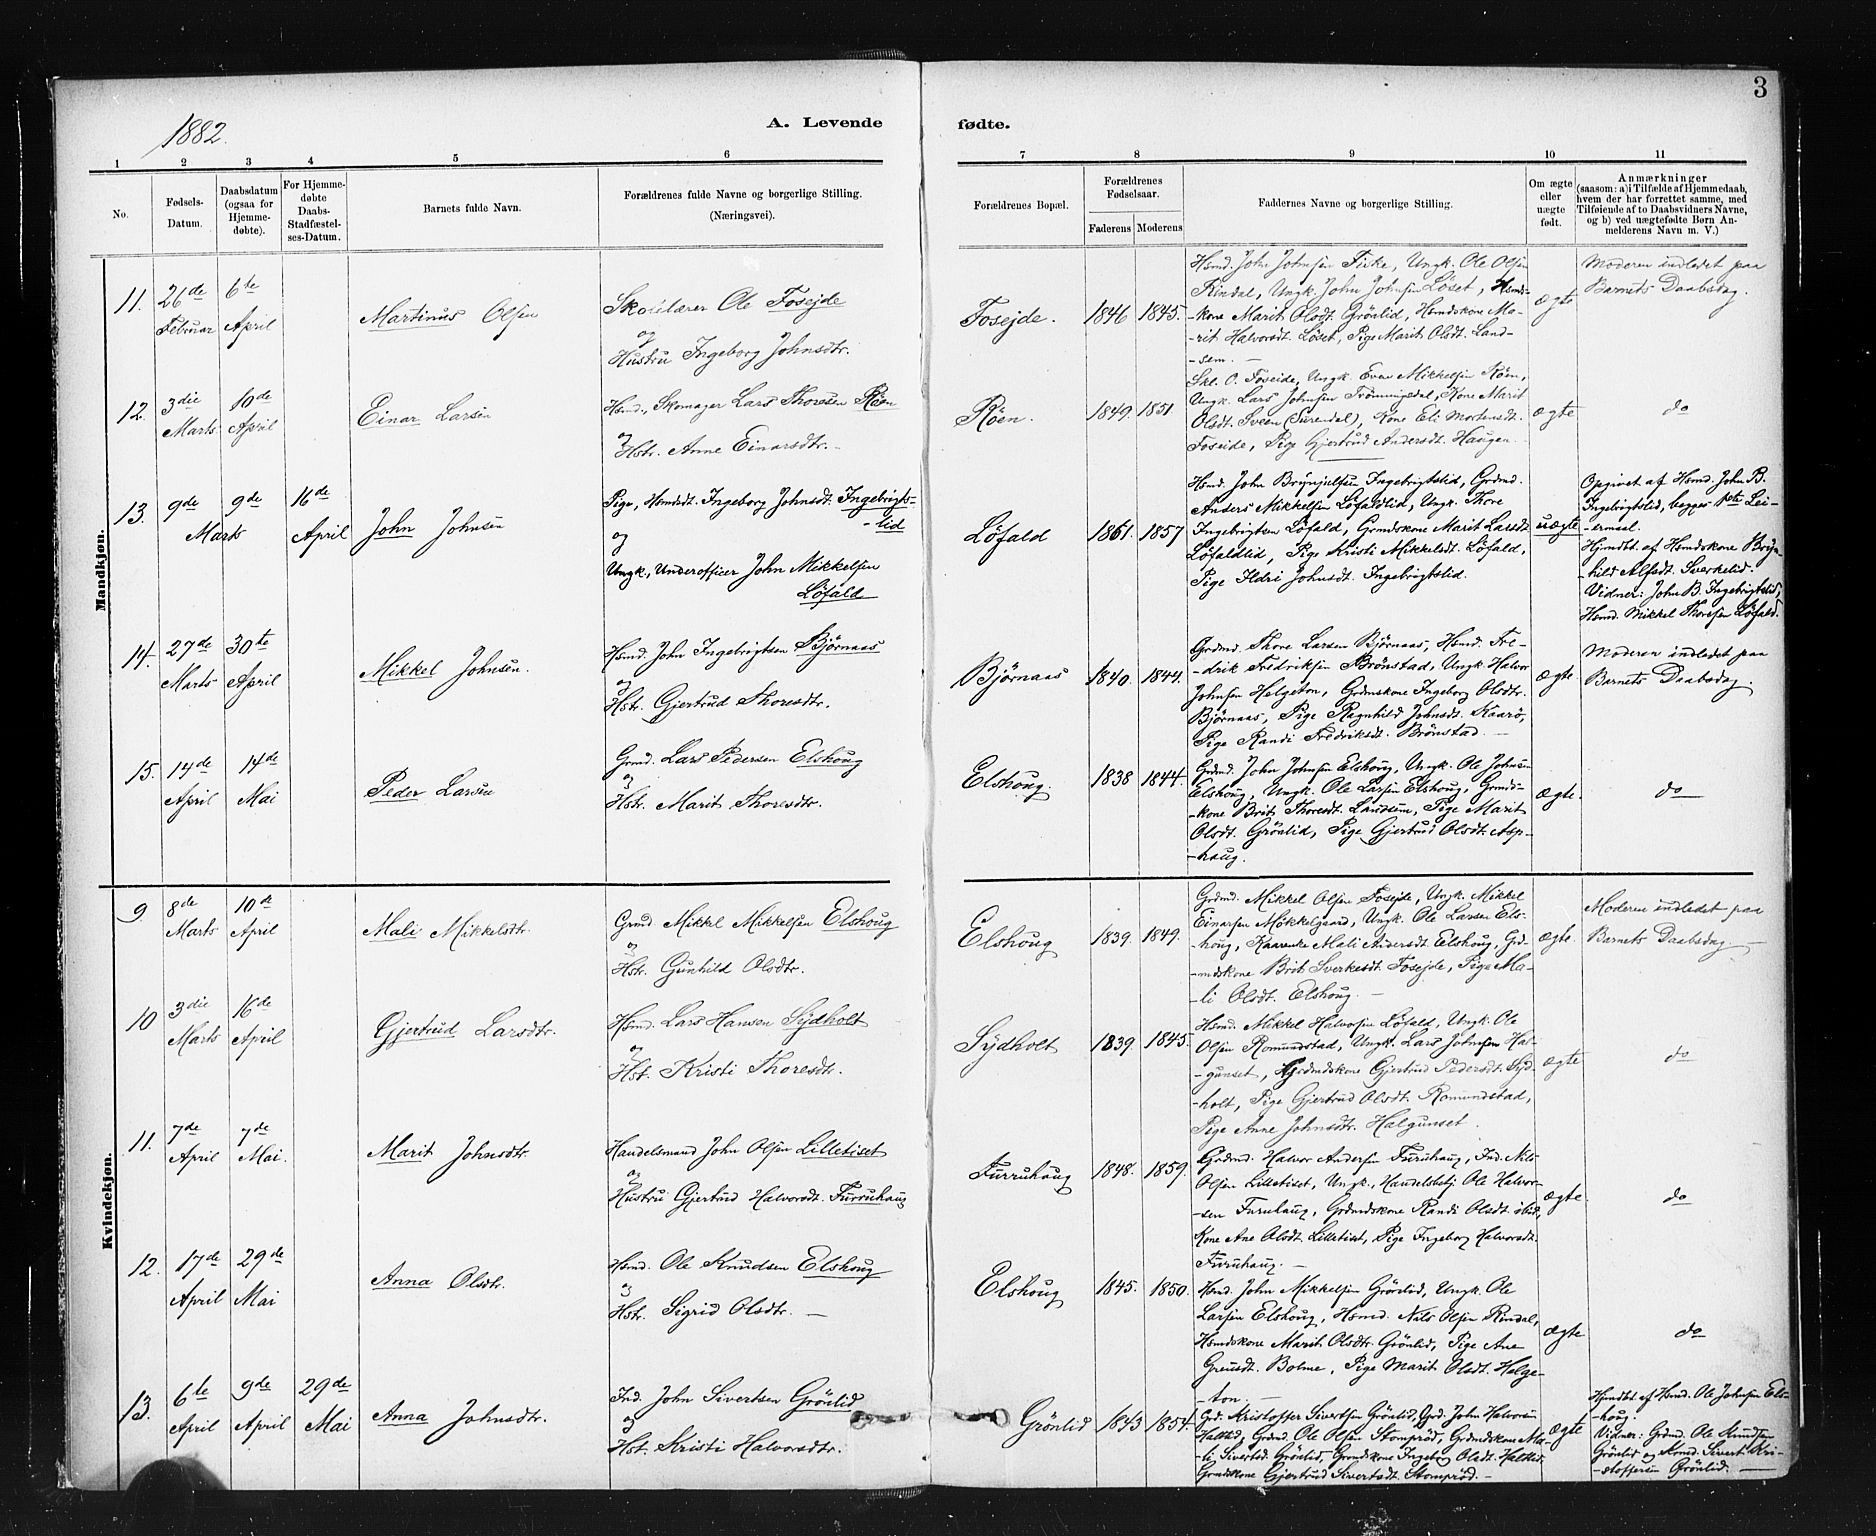 3
1882.
A. Levende fødte.
1 2 3 4 5 6 7 8 9 10 11
No.
Fødsels-
Datum.
Daabsdatum
(ogsaa for
Hjemme-
døbte).
For Hjemme-
døbte
Daabs-
Stadfæstel-
ses-Datum.
Barnets fulde Navn.
Forældrenes fulde Navne og borgerlige Stilling.
(Næringsvei).
Forældrenes Bopæl.
Forældrenes
Fødselsaar.
Faderens Moderens
Faddernes Navne og borgerlige Stilling.
Om ægte
eller
uægte
født.
Anmærkninger
(saasom: a) i Tilfælde af Hjemmedaab,
hvem der har forrettet samme, med
Tilføiende af to Daabsvidners Navne,
og b) ved uægtefødte Børn An-
melderens Navn m. V.)
Mandkjøn.
11. 26de Februar 6te April
Martinus Olsen
Skolelærer Ole Fosejde
og
Hustru Ingeborg Johnsdtr.
Fosejde. 1846 1845.
Hsmd. John Johnsen Fiske, Ungk. Ole Olsen
Rindal, Ungk. John Johnsen Løset, Hsmds-
kone Marit Olsdt. Grönlid, Hsmdskone Ma-
-rit Halvorsdt. Löset, Pige Marit Olsdt. Land-
-sem. —
ægte
Moderen indledet paa
Barnets Daabsdag.
12. 3die Marts 10de April
Einar Larsen
Hsmd., Skomager Lars Thoresen Röen
og
Hstr. Anne Einarsdtr. -
Röen. 1849. 1851
Skl. O. Foseide, Ungk. Even Mikkelsen Röen,
Ungk. Lars Johnsen Trönningsdal, Kone Marit
Olsdt. Sveen (Surendal), Kone Eli Mortensdt.
Foseide, Pige Gjertrud Andersdt. Haugen. -
ægte
do
13. 9de 9de Marts 16de April
John Johnsen
Pige, Hsmdsdt. Ingeborg Johnsdt. Ingebrigts-
-lid
og
Ungk., Underofficer John Mikkelsen
Löfald
Löfald 1861. 1857
Hsmd. John Brynjelsen Ingebrigtslid, Grdmd.
Anders Mikkelsen Löfaldlid, Ungk. Thore
Ingebrigtsen Löfald, Grmdskone Marit Larsdt.
Löfaldlid, Pige Kristi Mikkelsdt. Löfald,
Pige Ildri Johnsdt. Ingebrigtslid.
uægte
Opgivet af Hsmd. John B.
Ingebrigtslid, begges 1ste Lei-
-ermaal.
Hjmdbt. af Hsmdskone Bryn-
-hild Alfsdt. Sverkelid.
Vidner: John B. Ingebrigtslid,
Hsmd. Mikkel Thoresen Löfald.
14. 27de Marts 30te April
Mikkel Johnsen.
Hsmd. John Ingebrigtsen Björnaas
og
Hstr. Gjertrud Thoresdtr.
Björnaas 1840. 1844.
Grdmd. Thore Larsen Björnaas, Hsmd. Fre-
-drik Fredriksen Brönstad, Ungk. Halvor
Johnsen Helgeton, Grdmskone Ingeborg Olsdtr.
Björnaas, Pige Ragnhild Johnsdt. Kaarö,
Pige Randi Fredriksdt. Brönstad. —
ægte.
Moderen indledet paa
Barnets Daabsdag.
15. 14de April 14de Mai
Peder Larsen
Grmd. Lars Pedersen Elshoug
og
Hstr. Marit Thoresdtr.
Elshoug. 1838 1844.
Grdmd. John Johnsen Elshoug, Ungk. Ole Johnsen
Elshoug, Ungk. Ole Larsen Elshoug, Grmds-
-kone Brit Thoresdt. Landsem, Pige Marit
Olsdt. Grönlid, Pige Gjertrud Olsdt. Asp-
-haug.
ægte.
do
Kvindekjøn.
9 8de Marts 10de April
Mali Mikkelsdtr.
Grmd Mikkel Mikkelsen Elshoug
og
Hstr. Gunhild Olsdtr.
Elshoug 1839. 1849.
Grdmd. Mikkel Olsen Fosejde, Ungk. Mikkel
Einarsen Mökkelgaard, Ungk. Ole Larsen Els-
-houg, Kaarenke Mali Andersdt. Elshoug, Grd-
-mdskone Brit Sverkesdt. Fosejde, Pige Ma-
-li Olsdt. Elshoug. —
ægte.
Moderen indledet paa
Barnets Daabsdag —
10 3die Marts 16de April
Gjertrud Larsdtr.
Hsmd. Lars Hansen Sydholt
og
Hst. Kristi Thoresdtr.
Sydholt 1839 1845.
Hsmd. Mikkel Halvorsen Löfald, Ungk. Ole
Olsen Romundstad, Ungk. Lars Johnsen Hal-
-gunset, Grdmdskone Gjertrud Pedersdt. Syd-
-holt, Pige Gjertrud Olsdt. Romundstad,
Pige Anne Johnsdtr. Halgunset.
ægte
do
11. 7de April 7de Mai.
Marit Johnsdtr.
Handelsmand John Olsen Lilletiset
og
Hustru Gjertrud Halvorsdt. Furruhaug
Furruhaug 1848. 1859.
Grdmd. Halvor Andersen Furuhaug, Ind. Nils
Olsen Lilletiset, Ungk., Handelsbetj. Ole Halvor-
-sen Furuhaug, Grdmdskone Randi Olsdt. ibid,
Kone Ane Olsdt. Lilletiset, Pige Ingeborg Halvorsdt.
Furuhaug. —
ægte.
do
12. 17de April 29de Mai
Anna Olsdtr.
Hsmd. Ole Knudsen Elshoug
og
Hstr. Sigrid Olsdtr. —
Elshoug 1845. 1850.
Hsmd. John Mikkelsen Grönlid, Ungk. Ole
Larsen Elshoug, Hsmd. Nils Olsen Rindal,
Hsmdskone Marit Olsdtr Grönlid, Pige Ane
Greusdt. Bolme, Pige Marit Olsdt. Helge-
-ton. —
ægte
do
13. 6te April 9de April 29de Mai
Anna Johnsdtr.
Ind. John Sivertsen Grönlid
og
Hst. Kristi Halvorsdtr.
Grönlid 1843 1854.
Grd. Kristoffer Sivertsen Grönlid, Grd. John Halvorsen
Haltlid, Grdmd. Ole Olsen Stomprød, Grdmdskone Ma-
li Sivertsd. Grönlid, Grmdskone Ingeborg Olsdt. Haltlid
Grmdskone Gjertrud Sivertsdt Stomprød. —
ægte
Hjmdbt. af Hsmd. Ole Johnsen Els-
-houg.
Vidner: Grdmd. Ole Knudsen
Grönlid og Hsmd. Sivert Kri-
-stoffersen Grönlid. —